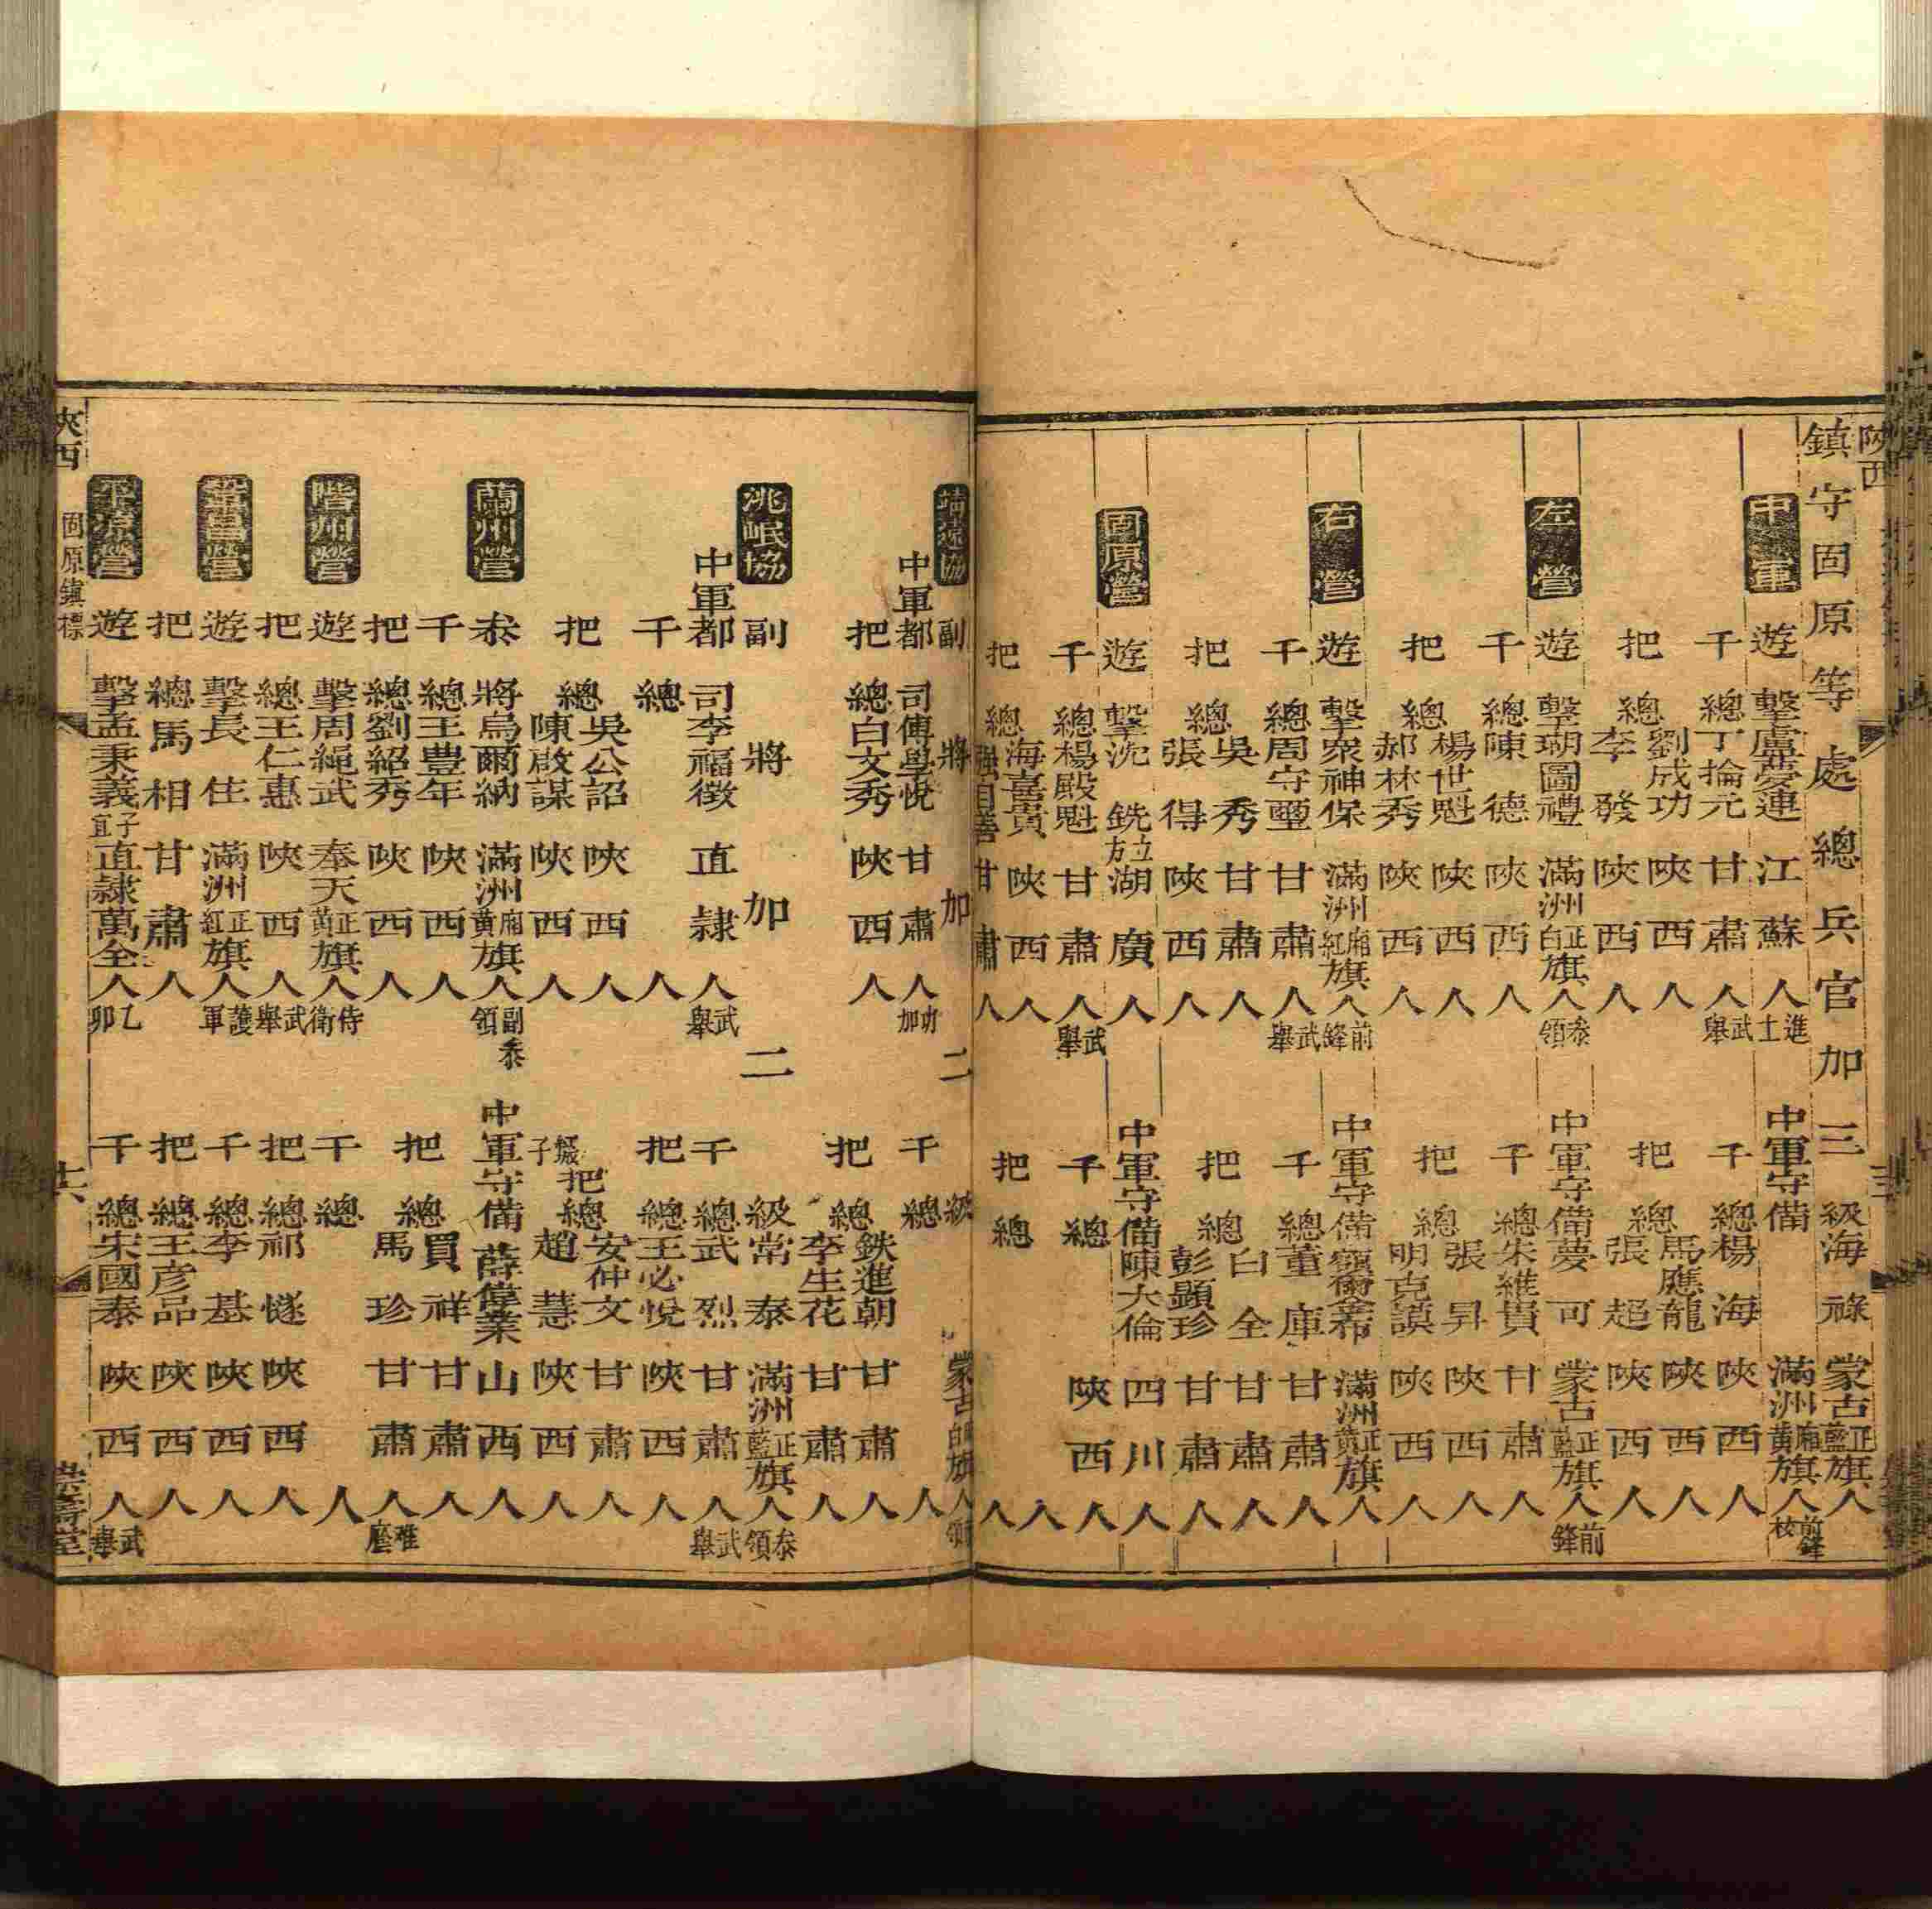 陝西
鎮守固原等處總兵官加三級海祿蒙古正藍旗人
中軍遊擊盧夢連江蘇人進士
中軍守備滿洲廂黃旗人前鋒校
千總丁掄元甘肅人武舉
千總楊海陝西人
把總劉成功陝西人
馬應龍陝西人
李發陝西人
把總張超陝西人
左營遊擊瑚圖禮滿洲正白旗人叅領
中軍守備夢可蒙古正藍旗人前鋒
千總陳德陝西人
千總朱維貴甘肅人
把總楊世魁陝西人
張昇陝西人
郝林秀陝西人
把總明克謨陝西人
右營遊擊衆神保滿洲廂紅旗人前鋒
中軍守備額爾希滿洲正黃旗人
千總周守璽甘肅人武舉
千總董庫甘肅人
把總吳秀甘肅人
白全甘肅人
張得陝西人
把總彭顯珍甘肅人
固原營遊擊沈銑立方湖廣人
中軍守備陳大倫四川人
千總楊殿魁甘肅人武舉
千總陝西人
把總海喜貴陝西人
把總人
強自善甘肅人
人
靖遠協副將加二級蒙古白旗人
中軍都司傅學悅甘肅人功加
千總人
把總白文秀陝西人
把總鉄進朝甘肅人
李生花甘肅人
洮岷協副將加二級常泰滿洲正藍旗人叅領
中軍都司李福徵直隸人武舉
千總武烈甘肅人武舉
千總人
把總王必悅陝西人
把總吳公詔陝西人
把總安仲文甘肅人
陳啟謀陝西人
趙慧陝西人
蘭州營叅將烏爾納滿洲廂黃旗人副叅領
中軍守備薛偉業山西人
千總王豊年陝西人
把總買祥甘肅人
把總劉紹秀陝西人
馬珍甘肅人
階州營遊擊周繩武奉天正黃旗人侍衛
千總人
把總王仁惠陝西人武舉
把總祁燧陝西人
鞏昌營遊擊長住滿洲正紅旗人護軍
千總李基陝西人
把總馬相甘肅人
把總王彥品陝西人
平凉營遊擊孟秉義子宜直隸萬全人乙卯
千總宋國泰陝西人武舉
陝西
固原鎮標
崇壽堂